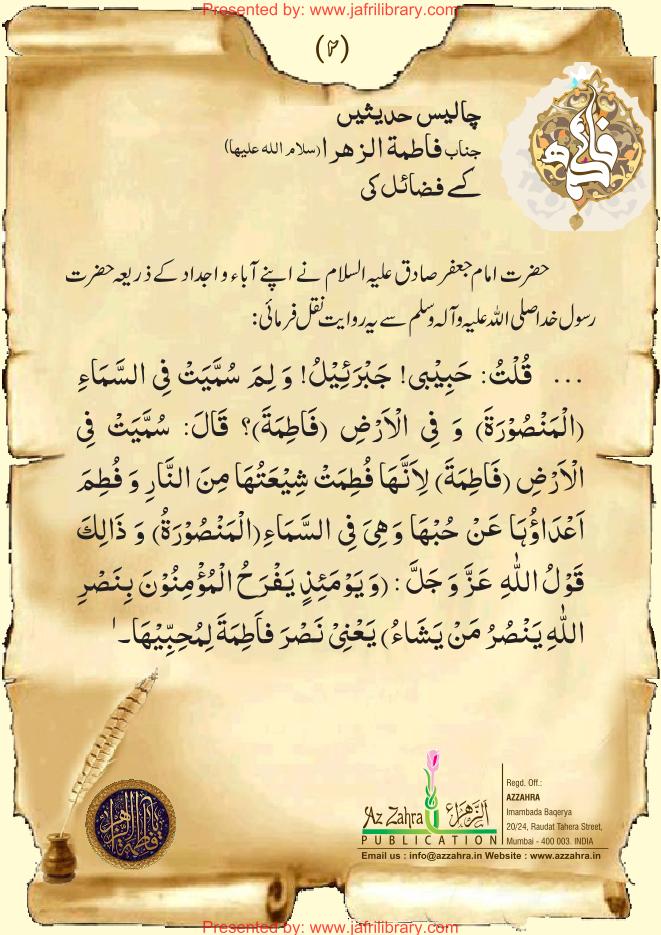 Presented by: www.jafrilibrary.com
(۲)
چالیس حدیثیں
جناب فاطمة الزهرا (سلام الله علیها)
کے فضائل کی
حضرت امام جعفر صادق علیہ السلام نے اپنے آباء و اجداد کے ذریعہ حضرت
رسول خدا صلی اللہ علیہ وآلہ وسلم سے یہ روایت نقل فرمائی:
... قُلْتُ: حَبِيْبِى! جَبْرَئِيْلُ! وَ لِمَ سُمِّيَتْ فِى السَّمَاءِ
(الْمَنْصُوْرَةَ) وَ فِى الْاَرْضِ (فَاطِمَةَ)؟ قَالَ: سُمِّيَتْ فِى
الْاَرْضِ (فَاطِمَةَ) لِاَنَّهَا فُطِمَتْ شِيْعَتُهَا مِنَ النَّارِ وَ فُطِمَ
اَعْدَاؤُہَا عَنْ حُبِّهَا وَ هِىَ فِى السَّمَاءِ (الْمَنْصُوْرَةُ) وَ ذَالِكَ
قَوْلُ اللّٰهِ عَزَّ وَ جَلَّ: (وَ يَوْمَئِذٍ يَفْرَحُ الْمُؤْمِنُوْنَ بِنَصْرِ
اللّٰهِ يَنْصُرُ مَنْ يَشَاءُ) يَعْنِىْ نَصْرَ فَاطِمَةَ لِمُحِبِّيْهَا۔ ۱
Az Zahra الزهراء
PUBLICATION
Regd. Off.:
AZZAHRA
Imambada Baqerya
20/24, Raudat Tahera Street,
Mumbai - 400 003. INDIA
Email us : info@azzahra.in Website : www.azzahra.in
Presented by: www.jafrilibrary.com